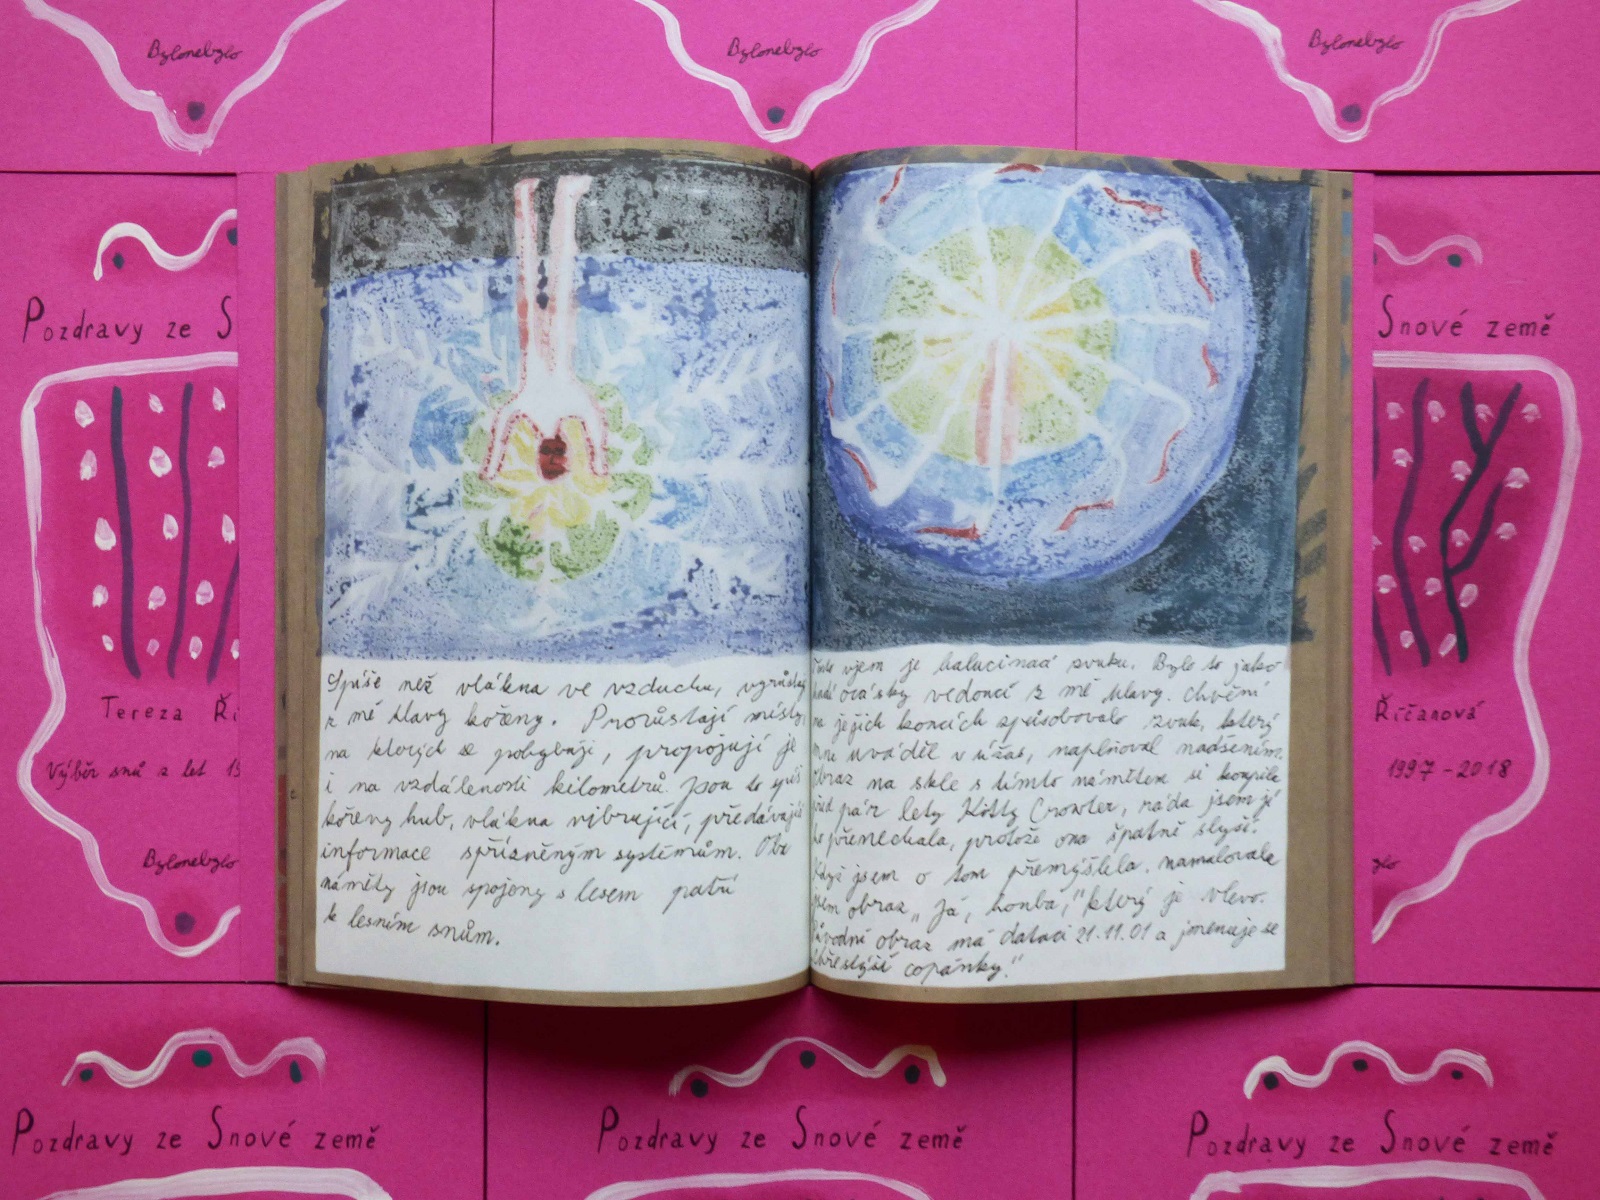 Bylonebylo
Bylonebylo
Bylonebylo
Pozdravy ze S
Tereza Ři
Výběr snů z let 19
Bylonebylo
Spíše než vlákna ve vzduchu, vyrůstají
z mé hlavy kořeny. Prorůstají místy,
na kterých se pohybuji, propojují je
i na vzdálenosti kilometrů. Jsou to spíš
kořeny hub, vlákna vibrující, předávající
informace spřízněným systémům. Oba
náměty jsou spojeny s lesem patří
k lesním snům.
vjem je halucinací zvuku. Bylo to jako
ocásky vedoucí z mé hlavy. Chvění
na jejich koncích způsobovalo zvuk, který
mne uváděl v úžas, naplňoval nadšením.
Obraz na skle s tímto námětem si koupila
před pár lety Kitty Crowter, ráda jsem jí
ho přenechala, protože ona špatně slyší.
Když jsem o tom přemýšlela, namalovala
jsem obraz „Já, houba,“ který je vlevo.
Původní obraz má dataci 21.11.01 a jmenuje se
copánky."
Snové země
Říčanová
1997-2018
Pozdravy ze Snové země
Pozdravy ze Snové země
Pozdravy ze Snové země